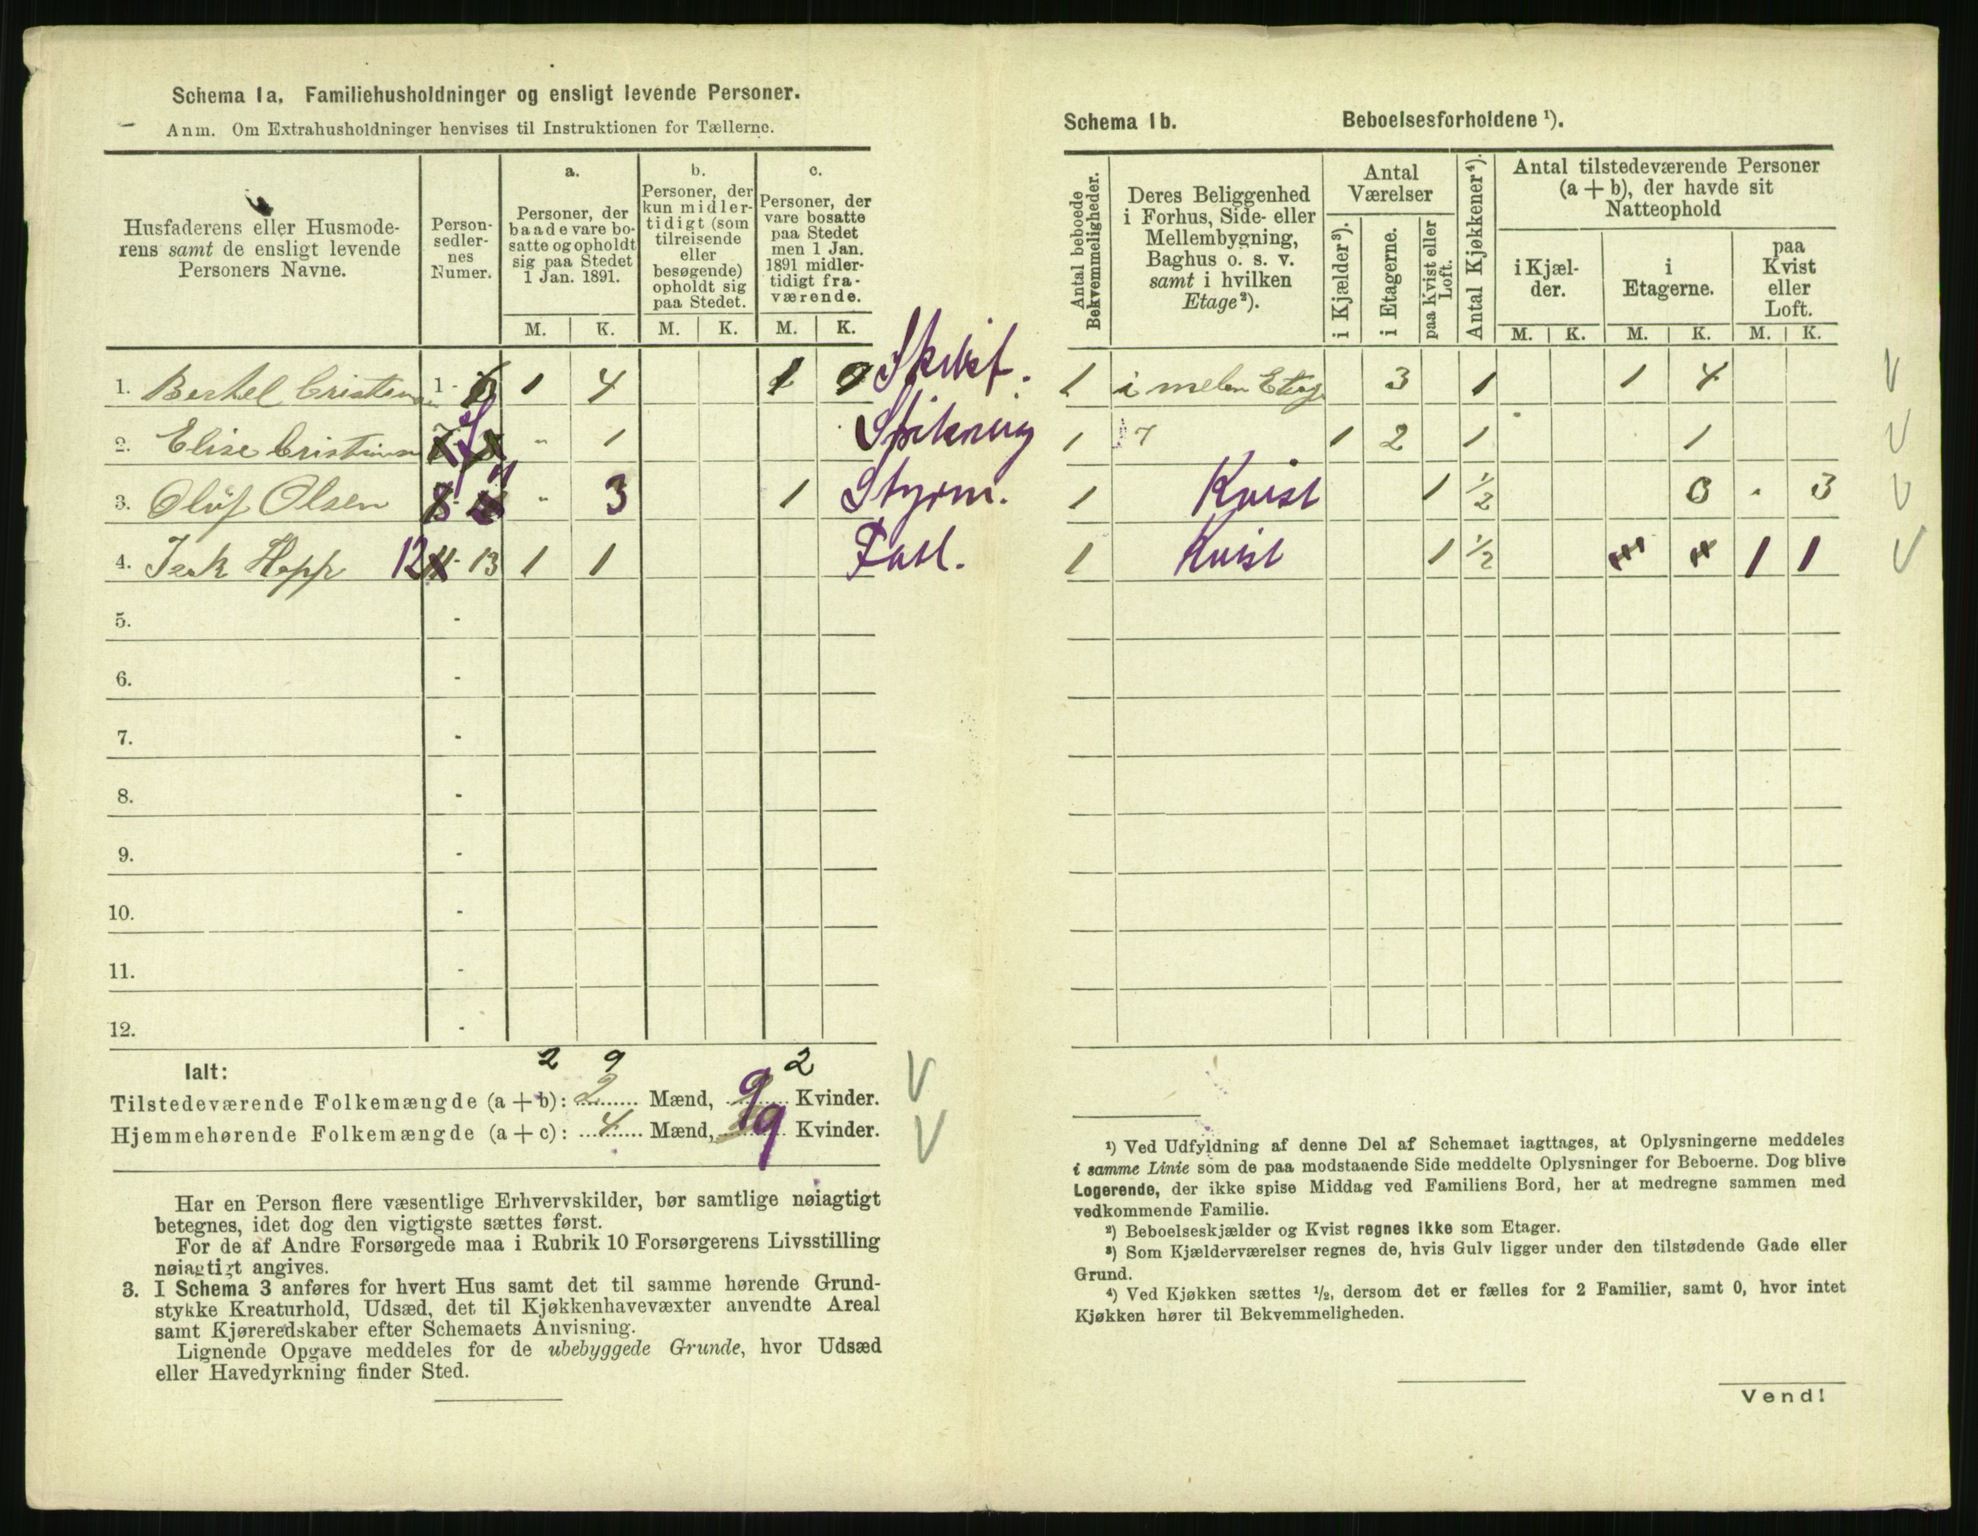 Schema 1a. Familiehusholdninger og ensligt levende Personer.
Anm. Om Extrahusholdninger henvises til Instruktionen for Tællerne.
Husfaderens eller Husmode-
rens samt de ensligt levende
Personers Navne.
Person-
sedler-
nes
Numer.
a.
Personer, der
baade vare bo-
satte og opholdt
sig paa Stedet
1 Jan. 1891.
b.
Personer, der
kun midler-
tidigt (som
tilreisende
eller
besøgende)
opholdt sig
paa Stedet.
c.
Personer, der
vare bosatte
paa Stedet
men 1 Jan.
1891 midler-
tidigt fra-
værende.
M. K. M. K. M. K.
1. Berhel Cristen 1 - 6 1 4 1 0
2. Elise Cristiansen 7 " 1
3. Olüf Olsen 8 - 11 " 3 1 Styrm.
4. Isak Hopp 12 - 13 1 1
5. -
6. -
7. -
8. -
9. -
10. -
11. -
12. -
Ialt: 2 9 2
Tilstedeværende Folkemængde (a + b): 2 Mænd, 9 Kvinder.
Hjemmehørende Folkemængde (a + c): 4 Mænd, 9 Kvinder.
Har en Person flere væsentlige Erhvervskilder, bør samtlige nøiagtigt
betegnes, idet dog den vigtigste sættes først.
For de af Andre Forsørgede maa i Rubrik 10 Forsørgerens Livsstilling
nøiagtigt angives.
3. I Schema 3 anføres for hvert Hus samt det til samme hørende Grund-
stykke Kreaturhold, Udsæd, det til Kjøkkenhavevæxter anvendte Areal
samt Kjøreredskaber efter Schemaets Anvisning.
Lignende Opgave meddeles for de ubebyggede Grunde, hvor Udsæd
eller Havedyrkning finder Sted.
Schema 1b. Beboelsesforholdene ¹).
Antal beboede
Bekvemmeligheder.
Deres Beliggenhed
i Forhus, Side- eller
Mellembygning,
Baghus o. s. v.
samt i hvilken
Etage ²).
Antal
Værelser
i Kjælder ³).
i Etagerne.
paa Kvist eller
Loft.
Antal Kjøkkener ⁴).
Antal tilstedeværende Personer
(a + b), der havde sit
Natteophold
i Kjæl-
der.
i
Etagerne.
paa
Kvist
eller
Loft.
M. K. M. K. M. K.
1 i melen Etag 3 1 1 4
1 1 2 1 1
1 Kvist 1 ½ 0 . 3
1 Kvist 1 ½ 1 1
¹) Ved Udfyldning af denne Del af Schemaet iagttages, at Oplysningerne meddeles
i samme Linie som de paa modstaaende Side meddelte Oplysninger for Beboerne. Dog blive
Logerende, der ikke spise Middag ved Familiens Bord, her at medregne sammen med
vedkommende Familie.
²) Beboelseskjælder og Kvist regnes ikke som Etager.
³) Som Kjælderværelser regnes de, hvis Gulv ligger under den tilstødende Gade eller
Grund.
⁴) Ved Kjøkken sættes ½, dersom det er fælles for 2 Familier, samt 0, hvor intet
Kjøkken hører til Bekvemmeligheden.
Vend!